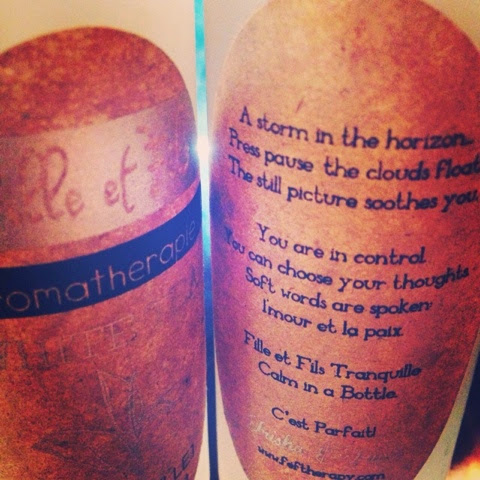 lle et
omatherapie
A storm in the horizon...
Press pause the clouds float
The still picture soothes you.
You are in control.
You can choose your thoughts
Soft words are spoken:
l'mour et la paix.
Fille et Fils Tranquille
Calm in a Bottle.
C'est Parfait!
www.feftherapy.com